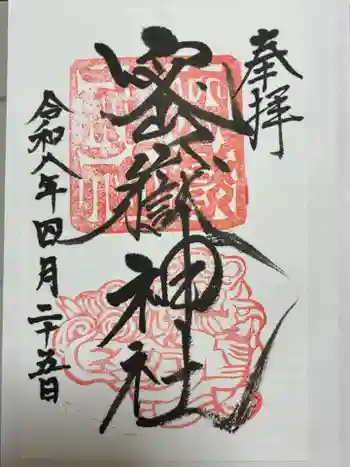 奉拝
密嶽神社
令和八年四月二十五日